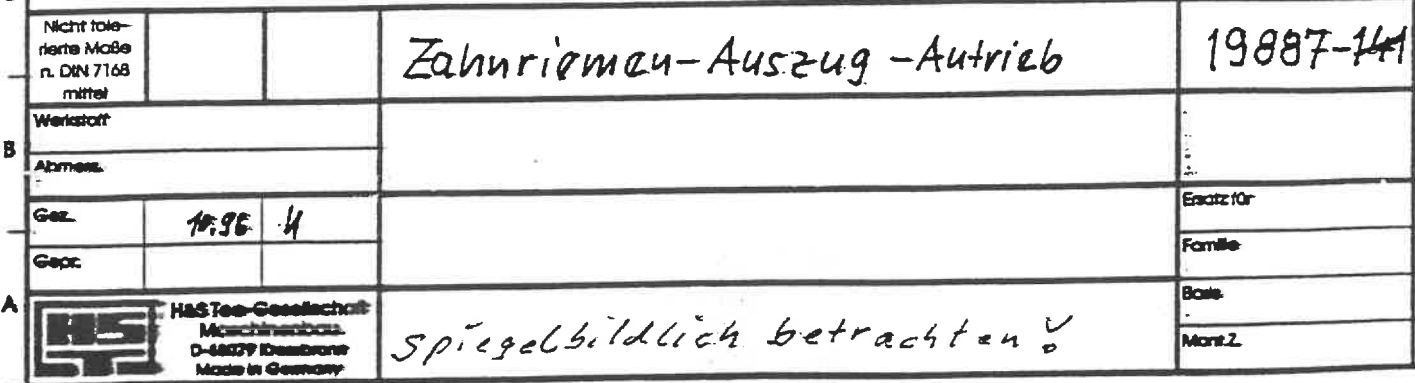 Nicht tole-
rierte Maße
n. DIN 7168
mittel
Zahnriemen-Auszug-Antrieb
19887-141
B
Werkstoff
Abmess.
Gez.
Gepr.
Ersatz für
Familie
A
HS
H&S Tee-Gesellschaft
Maschinenbau
Made in Germany
spiegelbildlich betrachten!
Basis
Mont.Z.